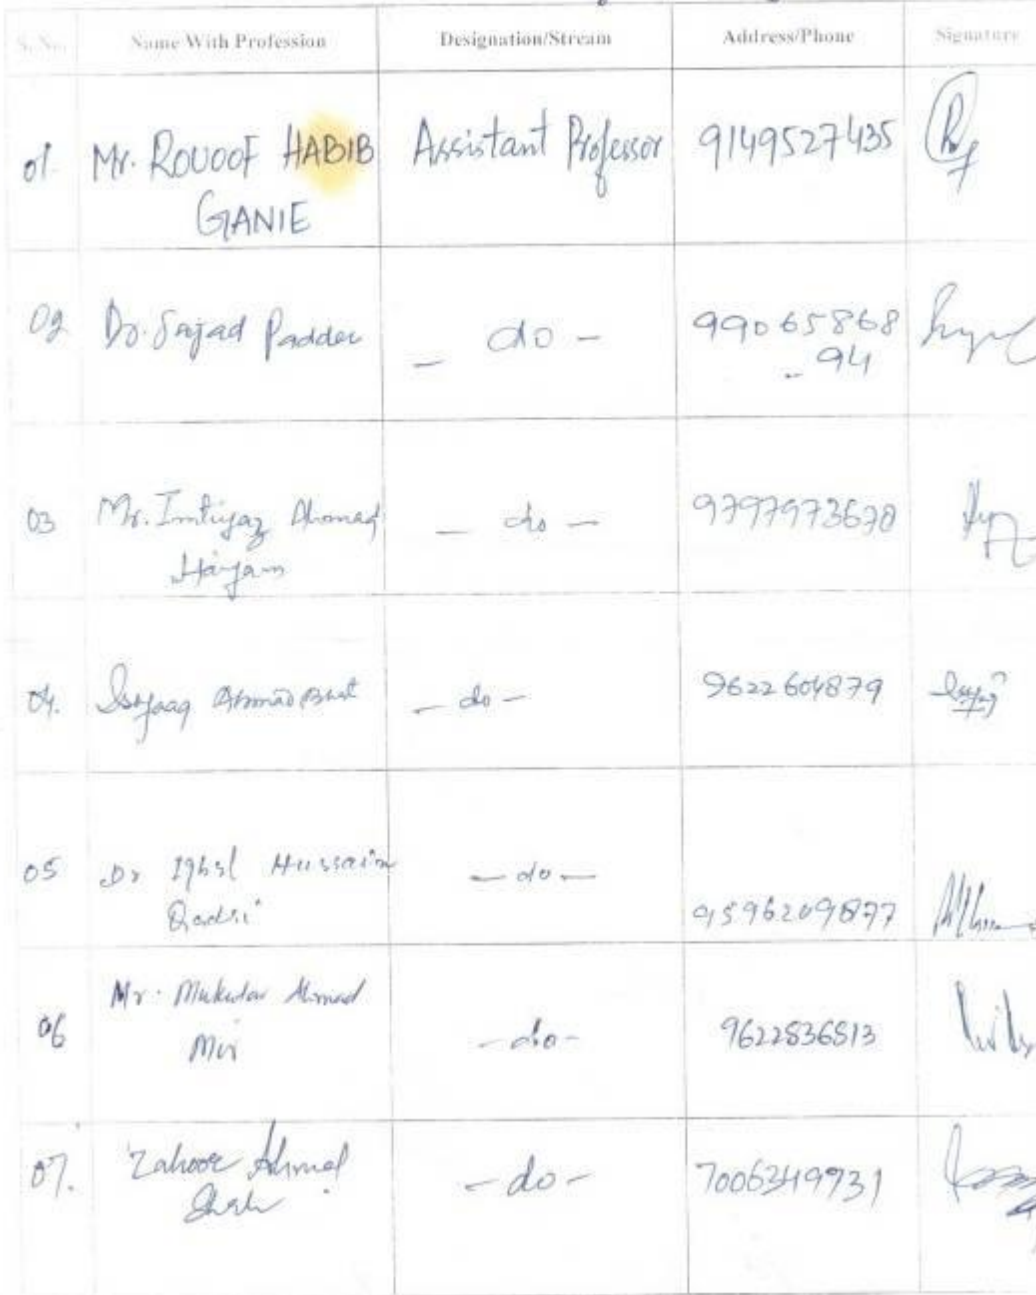 S. No. Name With Profession Designation/Stream Address/Phone Signature
01. Mr. ROUOOF HABIB Assistant Professor 9149527435
GANIE
02 Dr. Sajad Padder - do - 99065868
94
03 Mr. Imtiyaz Ahmad - do - 9797973670
Hajam
04. Ishfaaq Ahmad Bhat - do - 9622604879
05 Dr Iqbal Hussain - do -
Qadri 9596209877
Mr. Mukhtar Ahmad
06 Mir - do - 9622836813
07. Zahoor Ahmad - do - 7006349931
Shah